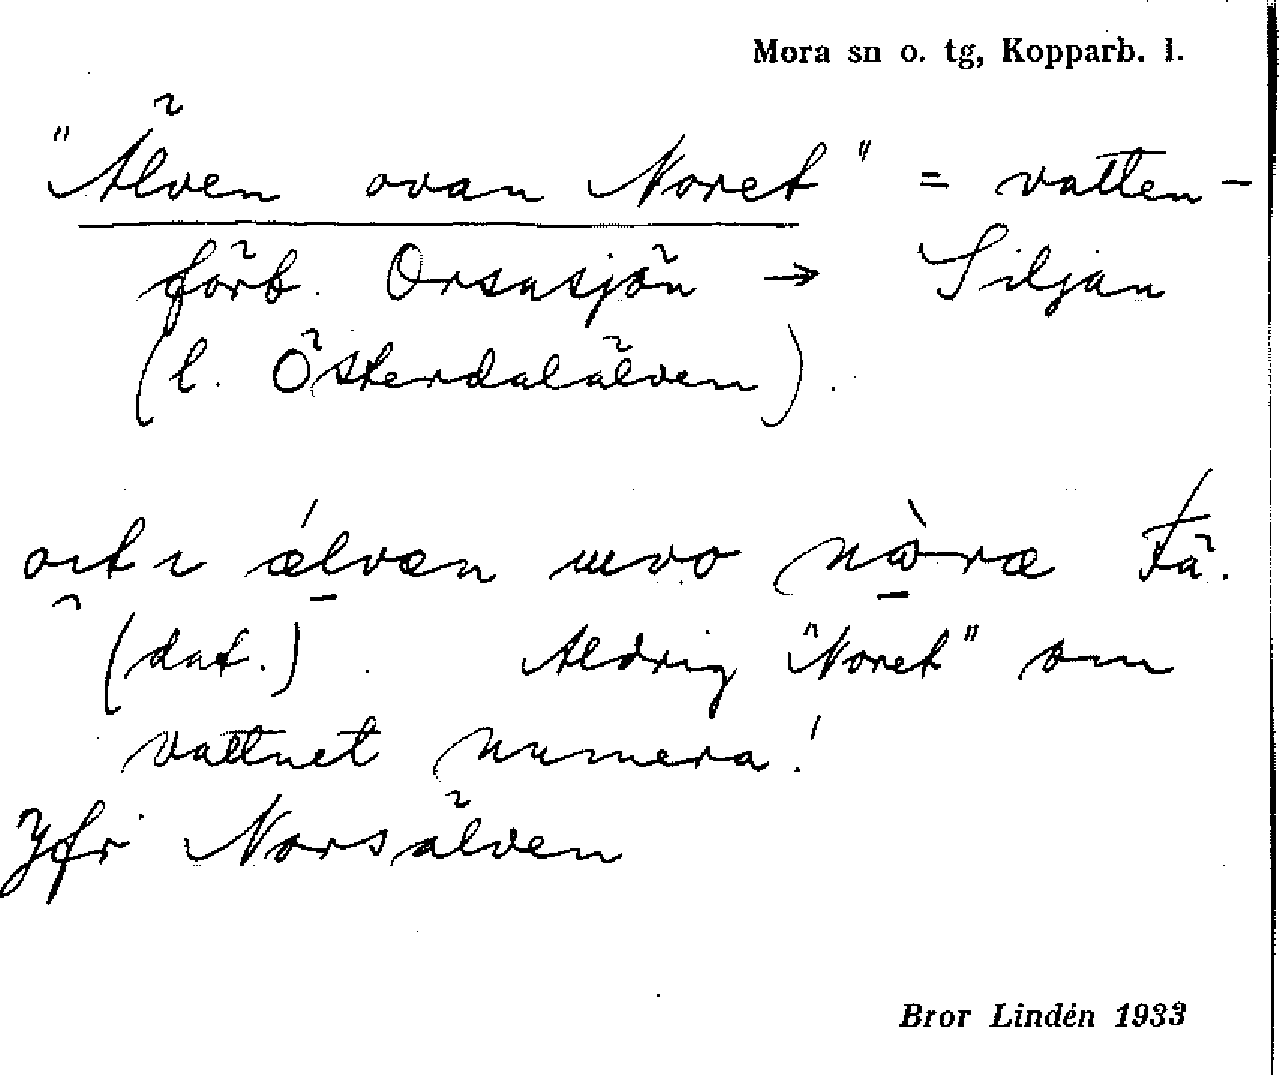 Mora sn o. tg, Kopparb. l.
"Älven ovan Noret" = vatten-
förb. Orsasjön → Siljan
(l. Österdalälven).
älvæn
(dat.). Aldrig "Noret" om
vattnet numera!
Jfr Norsälven
Bror Lindén 1933